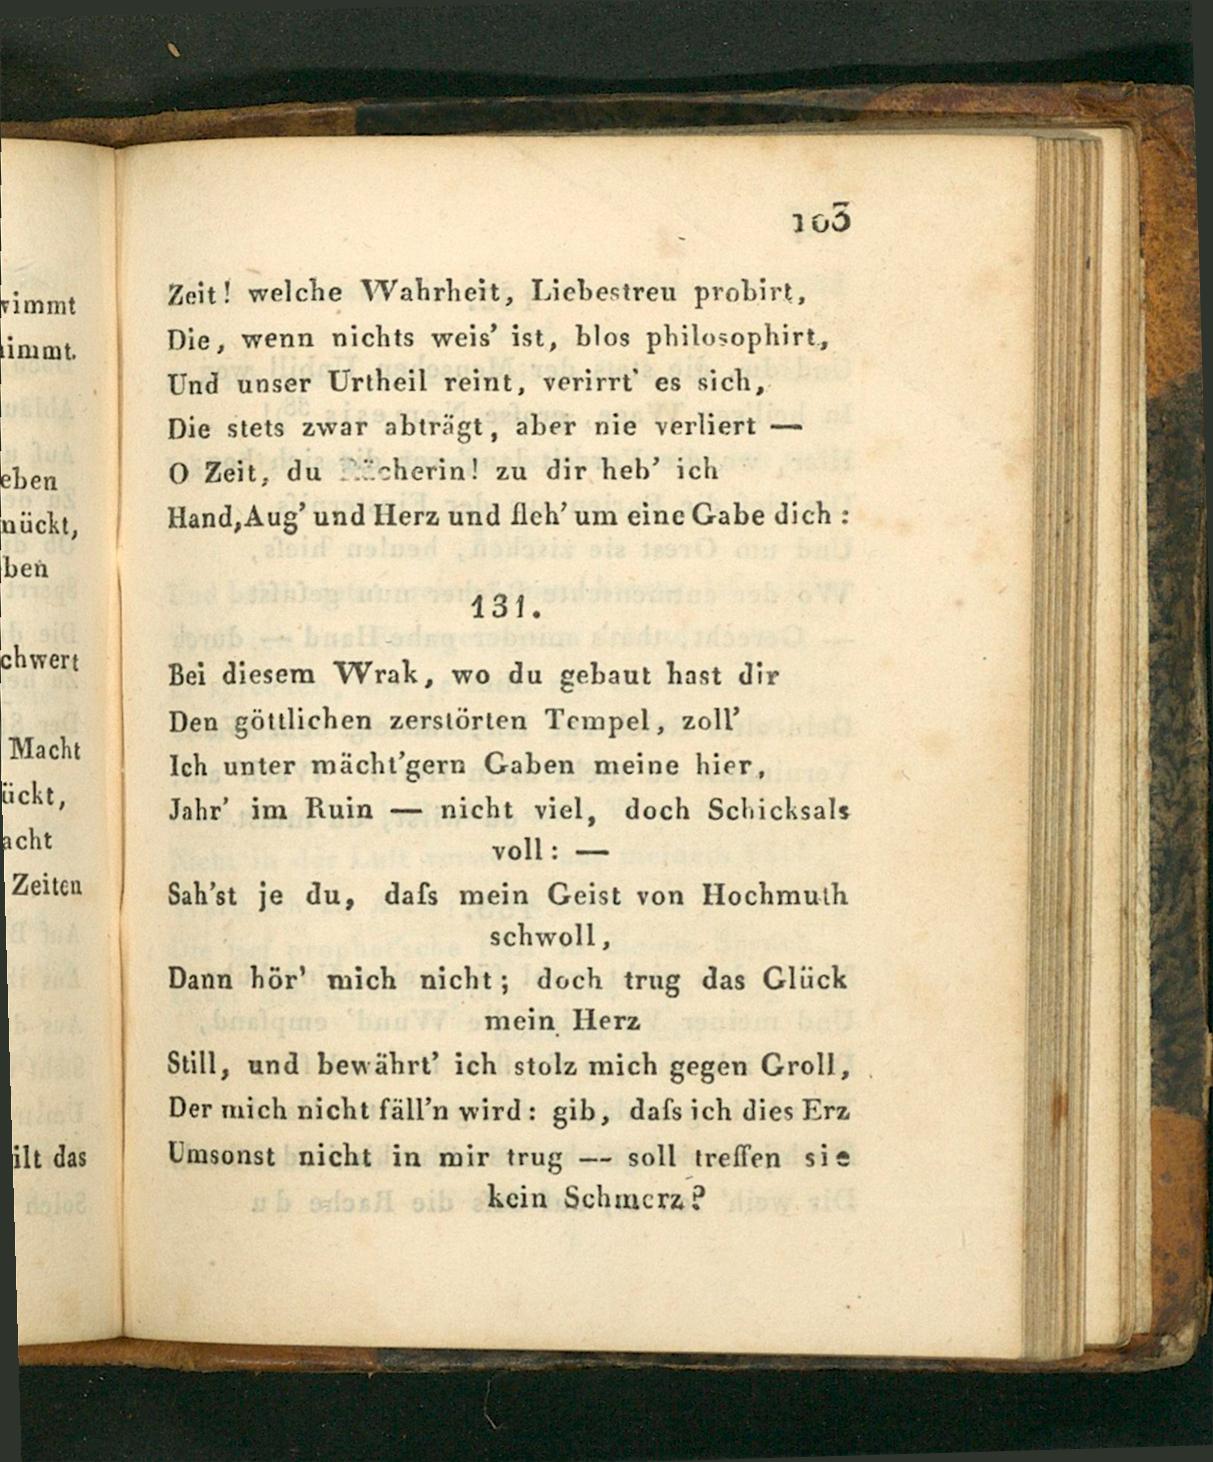 vimmt
immt.
eben
nückt,
ben
chwert
Macht
ückt,
acht
Zeiten
ilt das
103
Zeit! welche Wahrheit, Liebestreu probirt,
Die, wenn nichts weis' ist, blos philosophirt,
Und unser Urtheil reint, verirrt' es sich,
Die stets zwar abträgt, aber nie verliert —
O Zeit, du Rächerin! zu dir heb' ich
Hand, Aug' und Herz und fleh' um eine Gabe dich:
131.
Bei diesem Wrak, wo du gebaut hast dir
Den göttlichen zerstörten Tempel, zoll'
Ich unter mächt'gern Gaben meine hier,
Jahr' im Ruin — nicht viel, doch Schicksals
voll: —
Sah'st je du, daſs mein Geist von Hochmuth
schwoll,
Dann hör' mich nicht; doch trug das Glück
mein Herz
Still, und bewährt' ich stolz mich gegen Groll,
Der mich nicht fäll'n wird: gib, daſs ich dies Erz
Umsonst nicht in mir trug — soll treffen sie
kein Schmerz?